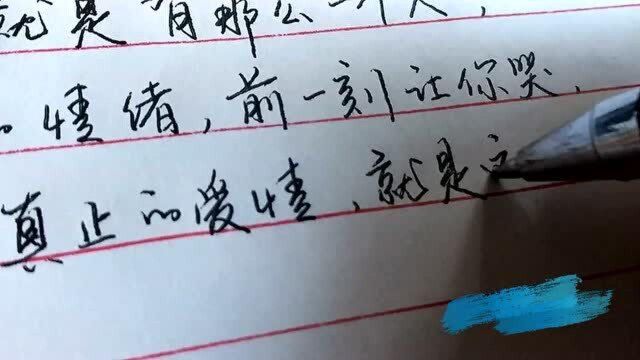 就是有那么一个人，
的情绪，前一刻让你哭，
真正的爱情，就是